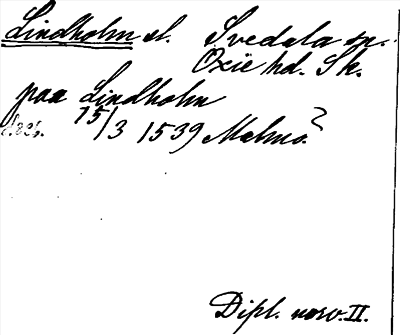 Lindholm sl. Svedala sn.
Oxie hd. Sk.
paa Lindholm
15/3 1539 Malmö?
Dipl. norv. II.